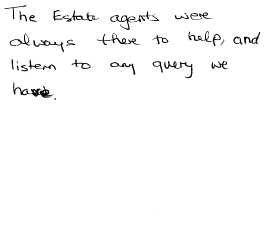 The Estate agents were
always there to help, and
listen to any query we
have.